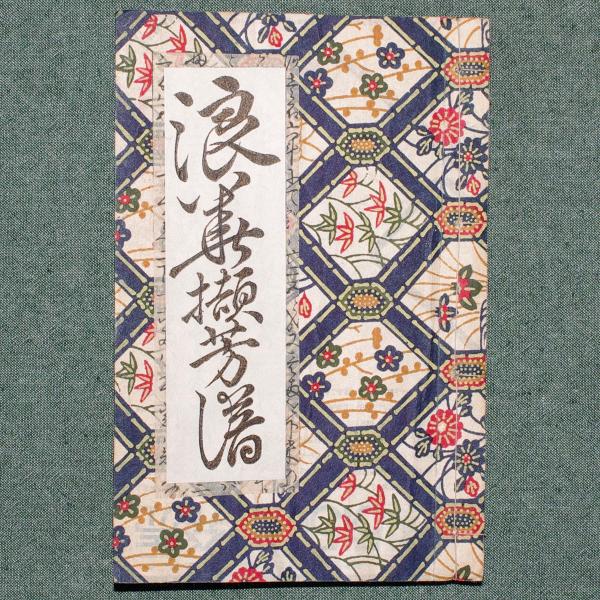 浪華擷芳譜